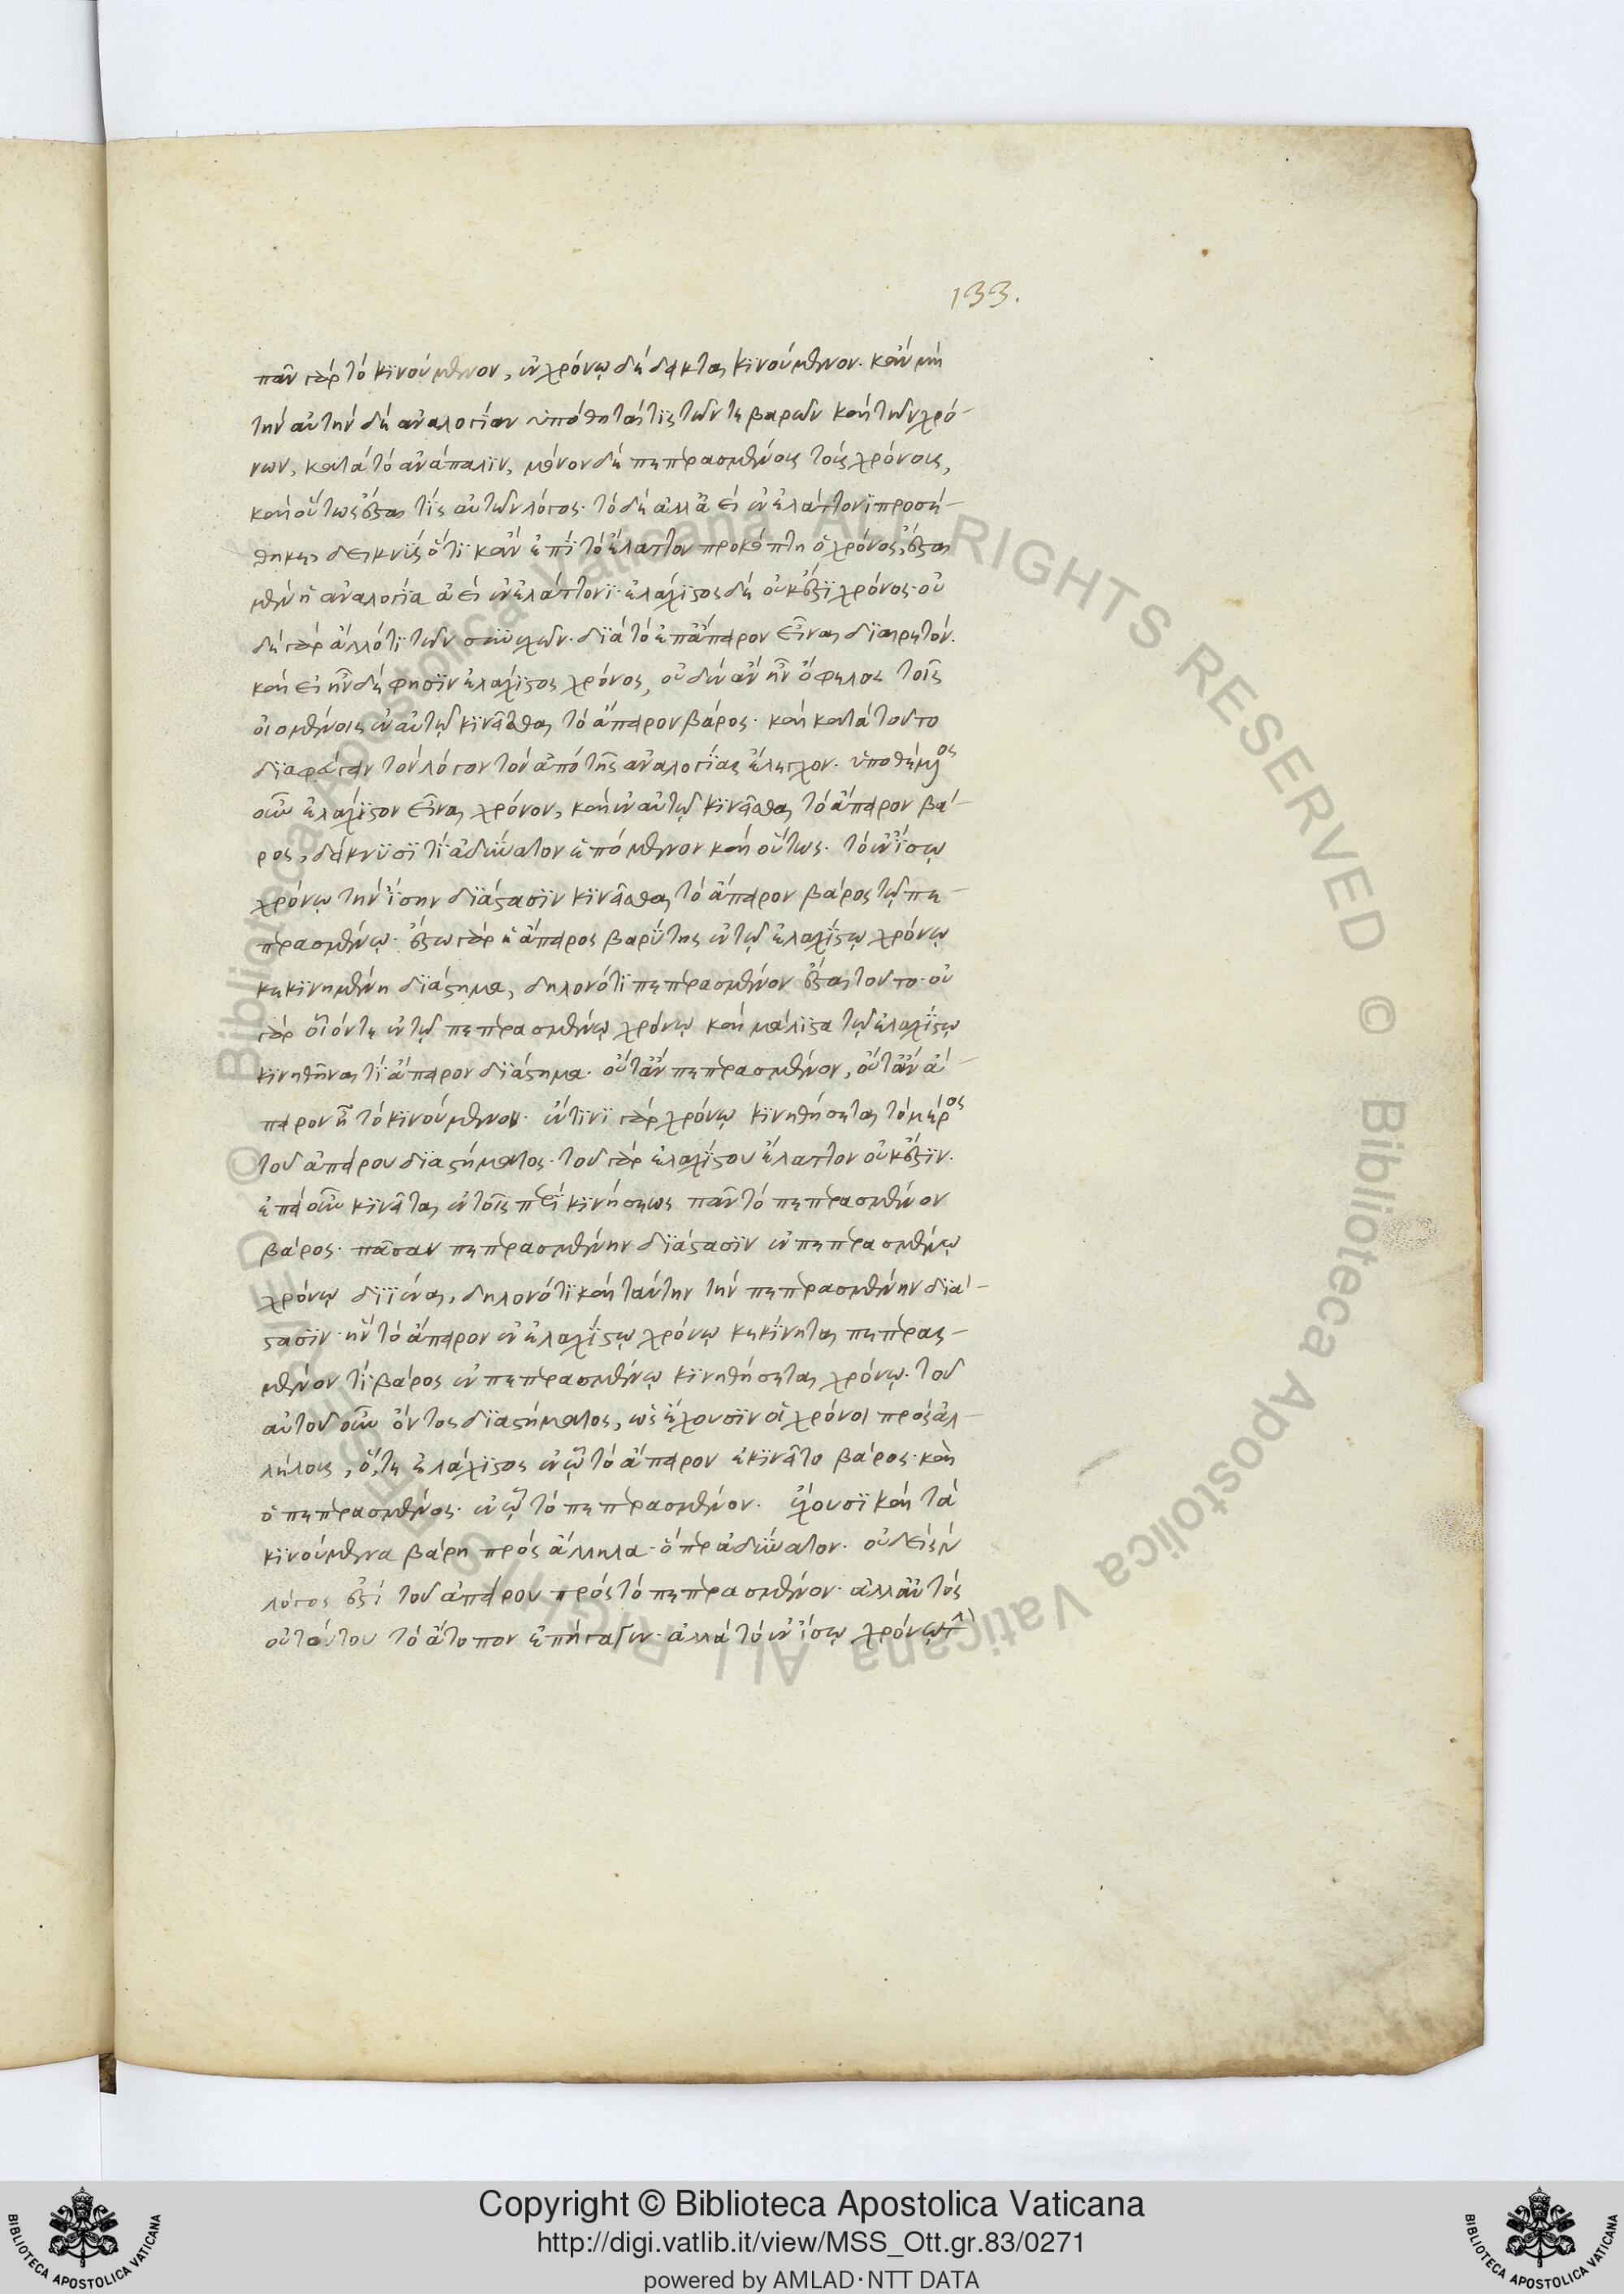 133.
πᾶν γὰρ τὸ κινούμενον, ἐν χρόνῳ δέδεικται κινούμενον. κἂν μὴ
τὴν αὐτὴν δὲ ἀναλογίαν ὑπόθηταί τις τῶν τε βαρῶν καὶ τῶν χρό-
νων, κατὰ τὸ ἀνάπαλιν, μένον δὲ πεπερασμένοις τοῖς χρόνοις,
καὶ οὕτως ἔσται τίς αὐτῶν λόγος. τὸ δὲ ἀλλ' ἀεὶ ἐν ἐλάττονι προσέ-
θηκε, δεικνὺς ὅτι κἂν ἐπὶ τὸ ἔλαττον προκόπτη ὁ χρόνος, ἔσται
μὲν ἡ ἀναλογία ἀεὶ ἐν ἐλάττονι. ἐλάχιστος δὲ οὐκ ἔστι χρόνος. οὐ
δὲ γὰρ ἄλλό τι τῶν συνεχῶν. διὰ τὸ ἐπ' ἄπειρον εἶναι διαιρετόν.
καὶ εἰ ἦν δέ φησιν ἐλάχιστος χρόνος, οὐδὲν ἂν ἦν ὄφελος τοῖς
οἰομένοις ἐν αὐτῷ κινεῖσθαι τὸ ἄπειρον βάρος. καὶ κατὰ τοῦτο
διαφεύγειν τὸν λόγον τὸν ἀπὸ τῆς ἀναλογίας ἔλεγχον. ὑποθέμενος
οὖν ἐλάχιστον εἶναι χρόνον, καὶ ἐν αὐτῷ κινεῖσθαι τὸ ἄπειρον βά-
ρος, δείκνυσί τι ἀδύνατον ἑπόμενον καὶ οὕτως. τὸ ἐν ἴσῳ
χρόνῳ τὴν ἴσην διάστασιν κινεῖσθαι τὸ ἄπειρον βάρος τῷ πε-
περασμένῳ. ἔστω γὰρ ἡ ἄπειρος βαρύτης ἐν τῷ ἐλαχίστῳ χρόνῳ
κεκινημένη διάστημα, δηλονότι πεπερασμένον ἔσται τοῦτο. οὐ
γὰρ οἷόν τε ἐν τῷ πεπερασμένῳ χρόνῳ καὶ μάλιστα τῷ ἐλαχίστῳ
κινηθῆναί τι ἄπειρον διάστημα. οὔτ' ἂν πεπερασμένον, οὔτ' ἂν ἄ-
πειρον ᾖ τὸ κινούμενον. ἐν τίνι γὰρ χρόνῳ κινηθήσεται τὸ μέρος
τοῦ ἀπείρου διαστήματος. τοῦ γὰρ ἐλαχίστου ἔλαττον οὐκ ἔστιν.
ἐπεὶ οὖν κινεῖται ἐν τοῖς περὶ κινήσεως πᾶν τὸ πεπερασμένον
βάρος. πᾶσαν πεπερασμένην διάστασιν ἐν πεπερασμένῳ
χρόνῳ διϊέναι, δηλονότι καὶ ταύτην τὴν πεπερασμένην διά-
στασιν ἣν τὸ ἄπειρον ἐν ἐλαχίστῳ χρόνῳ κεκίνηται πεπερασ-
μένον τι βάρος ἐν πεπερασμένῳ κινηθήσεται χρόνῳ. τοῦ
αὐτοῦ οὖν ὄντος διαστήματος, ὡς ἔχουσιν οἱ χρόνοι πρὸς ἀλ-
λήλους, ὅ, τε ἐλάχιστος ἐν ᾧ τὸ ἄπειρον ἐκινεῖτο βάρος. καὶ
ὁ πεπερασμένος. ἐν ᾧ τὸ πεπερασμένον. ἔχουσι καὶ τὰ
κινούμενα βάρη πρὸς ἄλληλα. ὅπερ ἀδύνατον. οὐδεὶς
λόγος ἐστὶ τοῦ ἀπείρου πρὸς τὸ πεπερασμένον. ἀλλ' αὐτὸς
οὐ τοῦτου τὸ ἄτοπον ἐπήγαγεν. ἀλλὰ τὸ ἐν ἴσῳ χρόνῳ